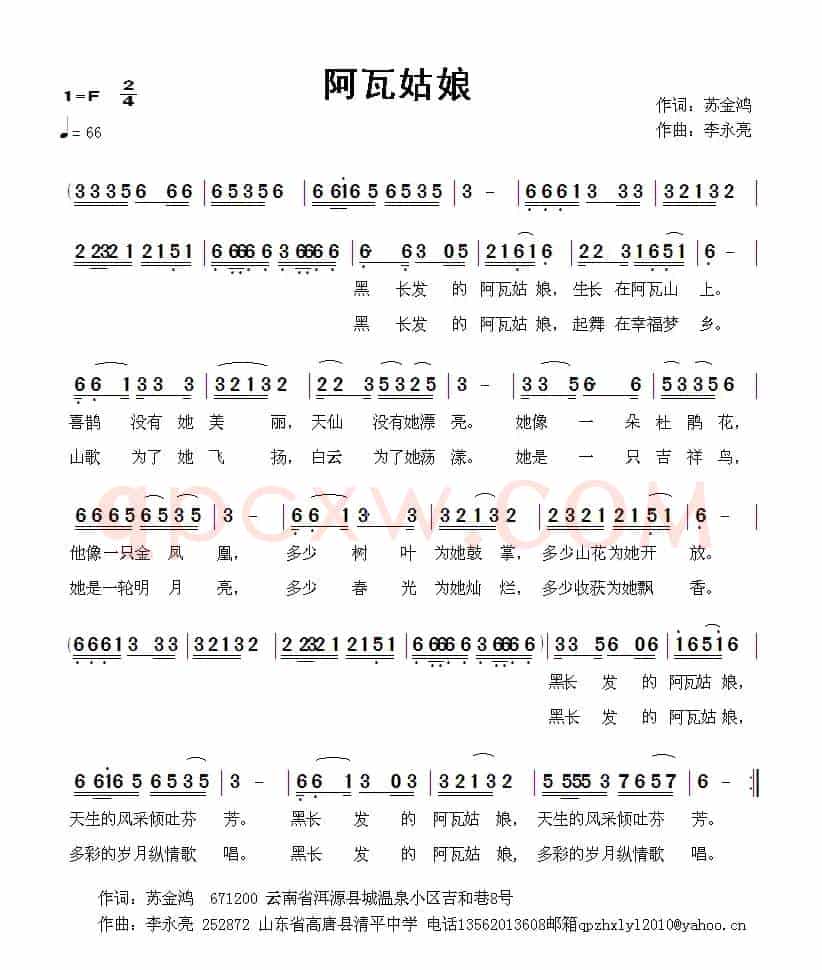 阿瓦姑娘
1=F 2/4
作词：苏金鸿
♩= 66
作曲：李永亮
(3 3 3 5 6 6 6 | 6 5 3 5 6 | 6 6 1 6 5 6 5 3 5 | 3 - | 6 6 6 1 3 3 3 | 3 2 1 3 2 |
2 2 3 2 1 2 1 5 1 | 6 6 6 6 6 3 6 6 6 6 | 6· 6 3 0 5 | 2 1 6 1 6 | 2 2 3 1 6 5 1 | 6 - |
黑 长发 的 阿瓦姑 娘，生长 在阿瓦山 上。
黑 长发 的 阿瓦姑 娘，起舞 在幸福梦 乡。
6 6 1 3 3 3 | 3 2 1 3 2 | 2 2 3 5 3 2 5 | 3 - | 3 3 5 6· 6 | 5 3 3 5 6 |
喜鹊 没有 她 美 丽，天仙 没有她漂 亮。 她像 一 朵 杜 鹃 花，
山歌 为了 她 飞 扬，白云 为了她荡 漾。 她是 一 只 吉 祥 鸟，
qpcxw.COM
6 6 6 5 6 5 3 5 | 3 - | 6 6 1 3· 3 | 3 2 1 3 2 | 2 3 2 1 2 1 5 1 | 6 - |
他像一只金 凤 凰， 多少 树 叶 为她鼓 掌，多少山花为她开 放。
她是一轮明 月 亮， 多少 春 光 为她灿 烂，多少收获为她飘 香。
(6 6 6 1 3 3 3 | 3 2 1 3 2 | 2 2 3 2 1 2 1 5 1 | 6 6 6 6 6 3 6 6 6 6) | 3 3 5 6 0 6 | 1 6 5 1 6 |
黑长 发 的 阿瓦姑 娘，
黑长 发 的 阿瓦姑 娘，
6 6 1 6 5 6 5 3 5 | 3 - | 6 6 1 3 0 3 | 3 2 1 3 2 | 5 5 5 5 3 7 6 5 7 | 6 - :||
天生的风采倾吐芬 芳。 黑长 发 的 阿瓦姑 娘，天生的风采倾吐芬 芳。
多彩的岁月纵情歌 唱。 黑长 发 的 阿瓦姑 娘，多彩的岁月纵情歌 唱。
作词：苏金鸿 671200 云南省洱源县城温泉小区吉和巷8号
作曲：李永亮 252872 山东省高唐县清平中学 电话13562013608邮箱qpzhxlyl2010@yahoo.cn